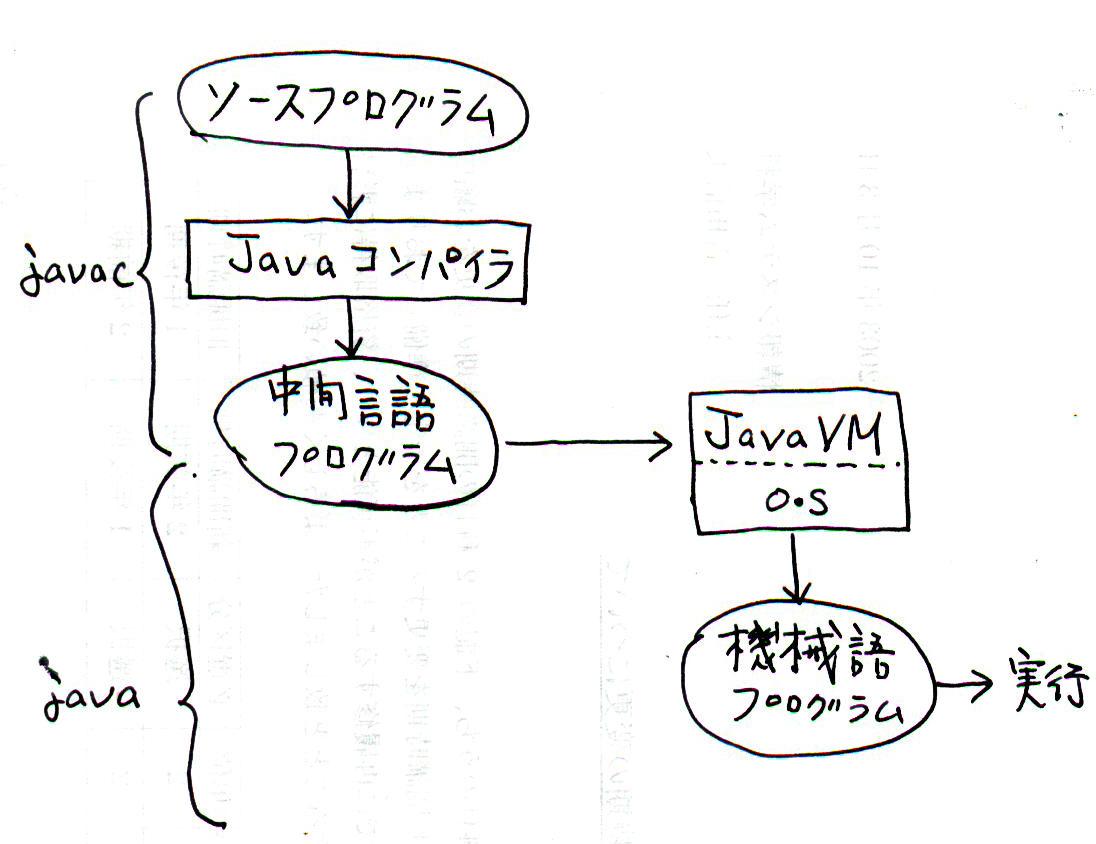 ソースプログラム
javac
Javaコンパイラ
中間言語
プログラム
JavaVM
O.S
java
機械語
プログラム
実行